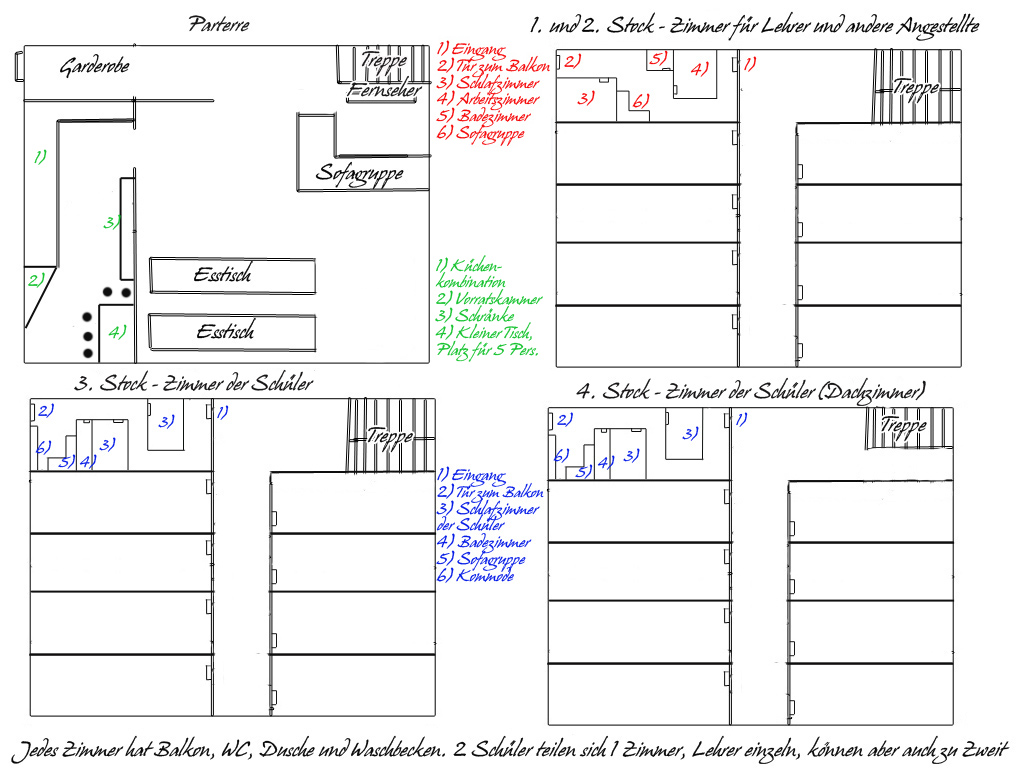 Parterre
Garderobe
Treppe
Fernseher
Sofagruppe
1)
2)
3)
4)
Esstisch
Esstisch
1) Eingang
2) Tür zum Balkon
3) Schlafzimmer
4) Arbeitszimmer
5) Badezimmer
6) Sofagruppe
1) Küchen-
kombination
2) Vorratskammer
3) Schränke
4) Kleiner Tisch,
Platz für 5 Pers.
1. und 2. Stock - Zimmer für Lehrer und andere Angestellte
2)
5)
4)
1)
3)
6)
Treppe
3. Stock - Zimmer der Schüler
2)
3)
1)
6)
5)
4)
3)
Treppe
1) Eingang
2) Tür zum Balkon
3) Schlafzimmer
der Schüler
4) Badezimmer
5) Sofagruppe
6) Kommode
4. Stock - Zimmer der Schüler (Dachzimmer)
2)
3)
1)
6)
5)
4)
3)
Treppe
Jedes Zimmer hat Balkon, WC, Dusche und Waschbecken. 2 Schüler teilen sich 1 Zimmer, Lehrer einzeln, können aber auch zu Zweit